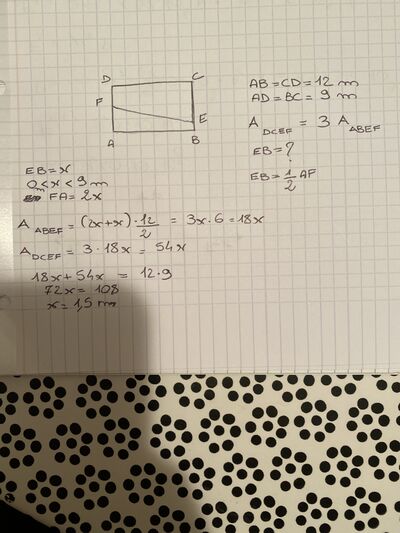 D C
F
E
A B
AB = CD = 12 m
AD = BC = 9 m
A DCEF = 3 A ABEF
EB = ?
EB = 1/2 AF
EB = x
0 < x < 9 m
FA = 2x
A ABEF = (2x+x) · 12/2 = 3x · 6 = 18x
A DCEF = 3 · 18x = 54x
18x + 54x = 12 · 9
72x = 108
x = 1,5 m